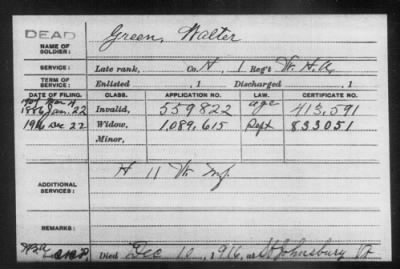 DEAD
NAME OF SOLDIER: Green, Walter
SERVICE: Late rank, Co. H, 1 Reg't Vt. H.A.
TERM OF SERVICE: Enlisted , 1 Discharged , 1
DATE OF FILING. CLASS. APPLICATION NO. LAW. CERTIFICATE NO.
1907 Mar 11 age
1886 Jan. 22 Invalid, 559822 413,591
1916 Dec 22 Widow, 1,089,615 Sept 833051
Minor,
ADDITIONAL SERVICES: H 11 Vt. Inf.
REMARKS:
Died Dec 10, 1916, at St Johnsbury Vt